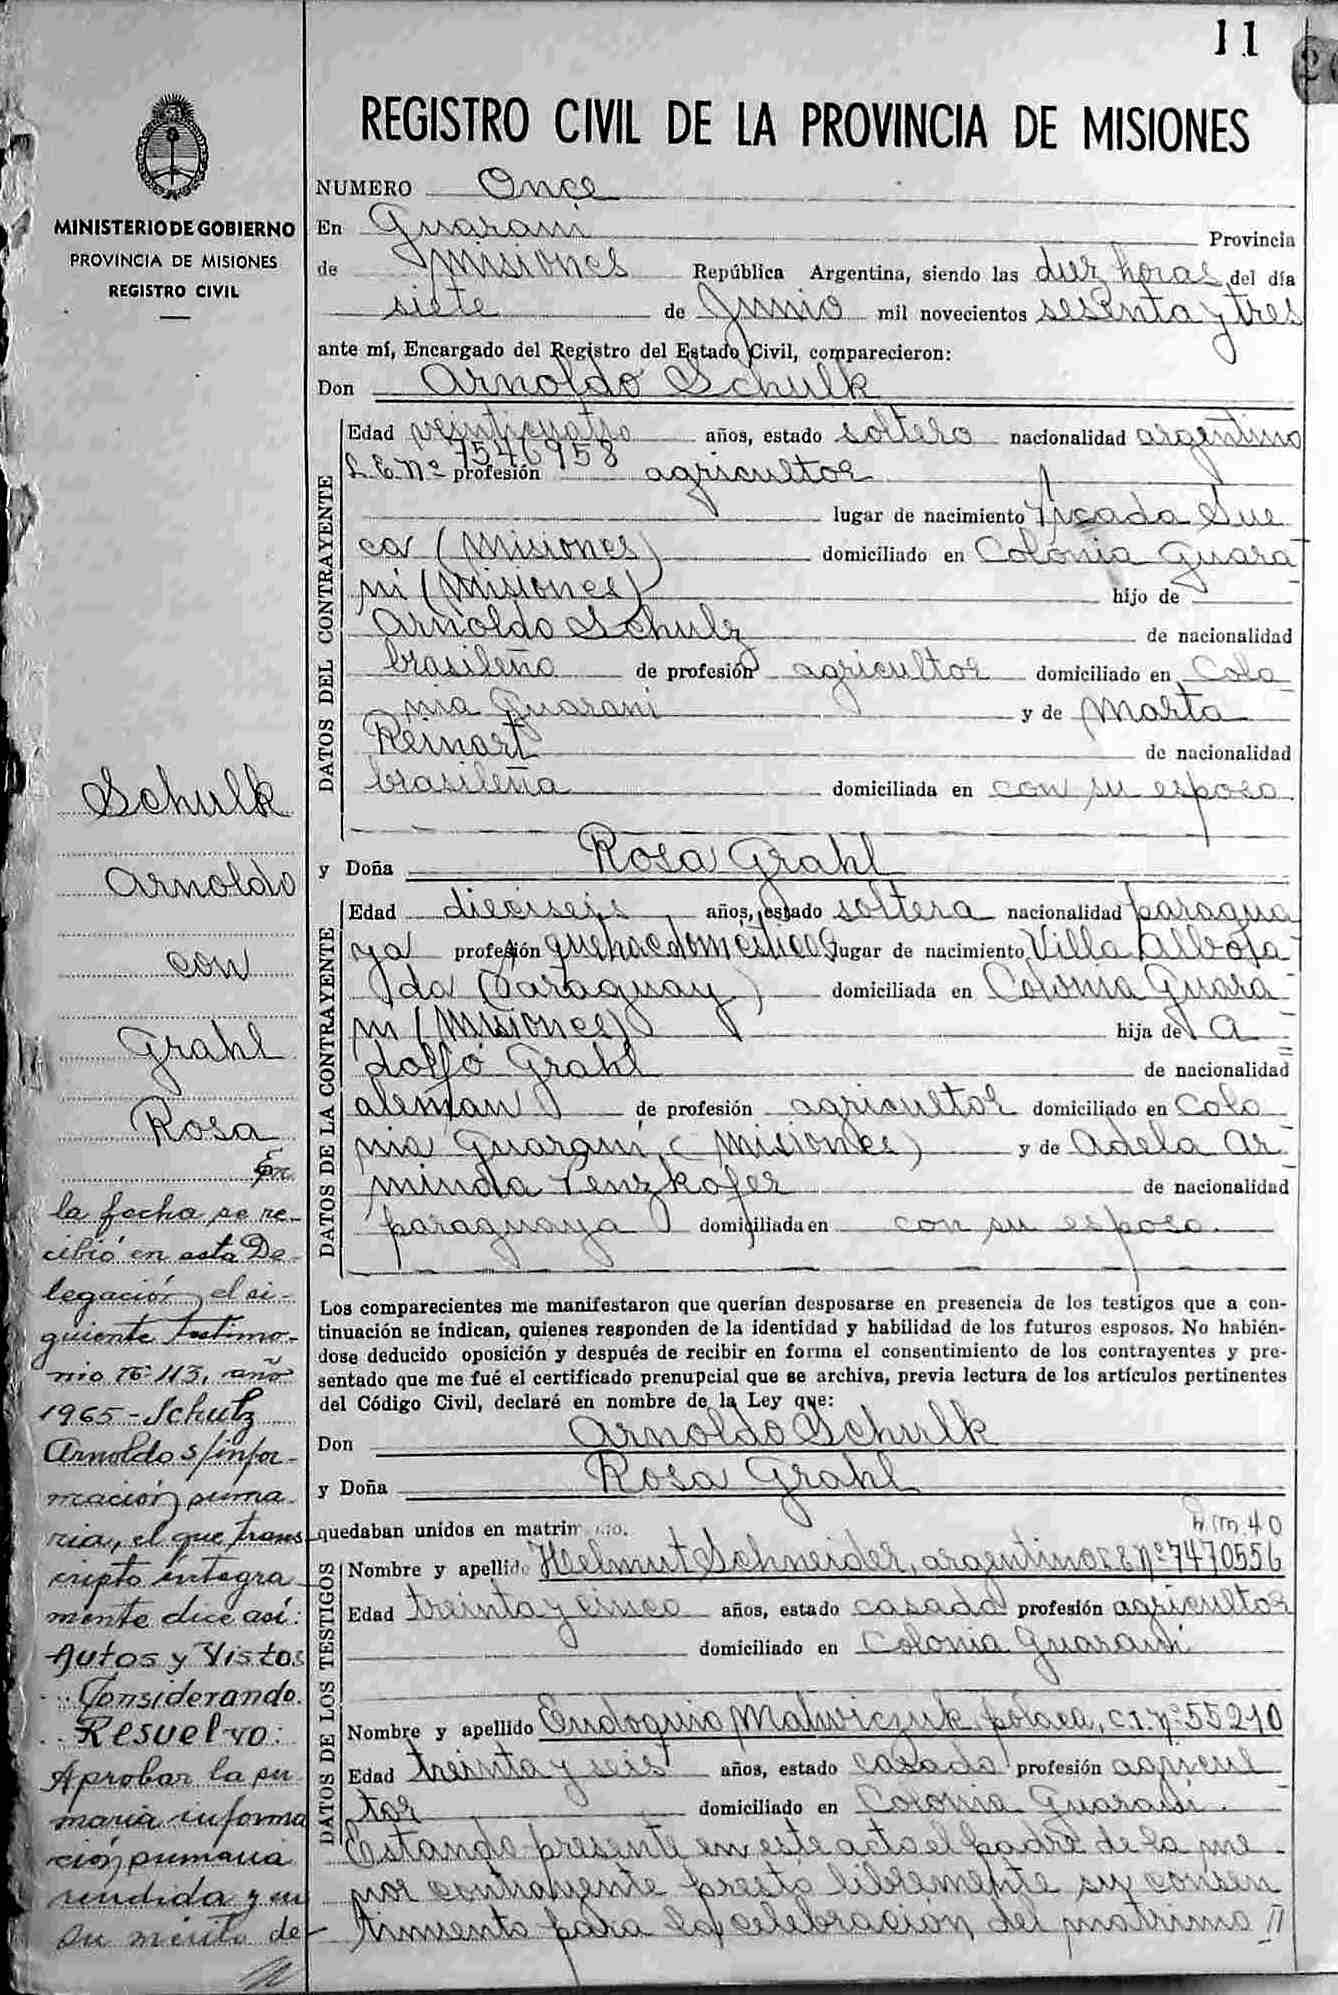 11
20
REGISTRO CIVIL DE LA PROVINCIA DE MISIONES
MINISTERIO DE GOBIERNO
PROVINCIA DE MISIONES
REGISTRO CIVIL
NUMERO Once
En Guarani Provincia
de Misiones República Argentina, siendo las diez horas del día
siete de Junio mil novecientos sesenta y tres
ante mí, Encargado del Registro del Estado Civil, comparecieron:
Don Arnoldo Schulk
DATOS DEL CONTRAYENTE
Edad veinticuatro años, estado soltero nacionalidad argentino
L.E.Nº 7546958 profesión agricultor
lugar de nacimiento Picada Sue
ca (Misiones) domiciliado en Colonia Guara
ni (Misiones) hijo de
Arnoldo Schulz de nacionalidad
brasileño de profesión agricultor domiciliado en Colo
nia Guarani y de Marta
Reinart de nacionalidad
brasileña domiciliada en con su esposo
y Doña Rosa Grahl
DATOS DE LA CONTRAYENTE
Edad dieciseis años, estado soltera nacionalidad paragua
ya profesión quehac domésticos lugar de nacimiento Villa Albora
da (Paraguay) domiciliada en Colonia Guara
ni (Misiones) hija de A
dolfo Grahl de nacionalidad
aleman de profesión agricultor domiciliado en Colo
nia Guarani (Misiones) y de Adela Ar
minda Penzkofer de nacionalidad
paraguaya domiciliada en con su esposo.
Los comparecientes me manifestaron que querían desposarse en presencia de los testigos que a con-
tinuación se indican, quienes responden de la identidad y habilidad de los futuros esposos. No habién-
dose deducido oposición y después de recibir en forma el consentimiento de los contrayentes y pre-
sentado que me fué el certificado prenupcial que se archiva, previa lectura de los artículos pertinentes
del Código Civil, declaré en nombre de la Ley que:
Don Arnoldo Schulk
y Doña Rosa Grahl
quedaban unidos en matrimonio.
D m 40
DATOS DE LOS TESTIGOS
Nombre y apellido Helmut Schneider, argentino L E Nº 7470556
Edad treinta y cinco años, estado casado profesión agricultor
domiciliado en Colonia Guarani
Nombre y apellido Eudoquia Malwiczuk, polaca, C.I. Nº 55210
Edad treinta y seis años, estado casado profesión agricul
tor domiciliado en Colonia Guarani.
Estando presente en este acto el padre de la me
nor contrayente presto libremente su consen
timiento para la celebracion del matrimo
Schulk
Arnoldo
con
Grahl
Rosa
En
la fecha se re-
cibió en esta De-
legación el si-
guiente testimo-
nio Nº 113, año
1965 - Schulz
Arnoldo s/infor-
mación suma
ria, el que trans-
cripto íntegra
mente dice así:
Autos y Vistos
Considerando.
Resuelvo:
Aprobar la su
maria informa
ción sumaria
rendida y en
su mérito de-